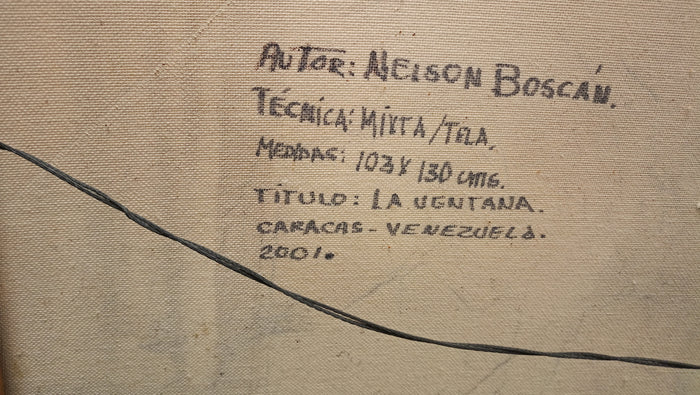 AUTOR: NELSON BOSCÁN.
TÉCNICA: MIXTA/TELA.
MEDIDAS: 103 X 130 cms.
TÍTULO: LA VENTANA.
CARACAS - VENEZUELA.
2001.